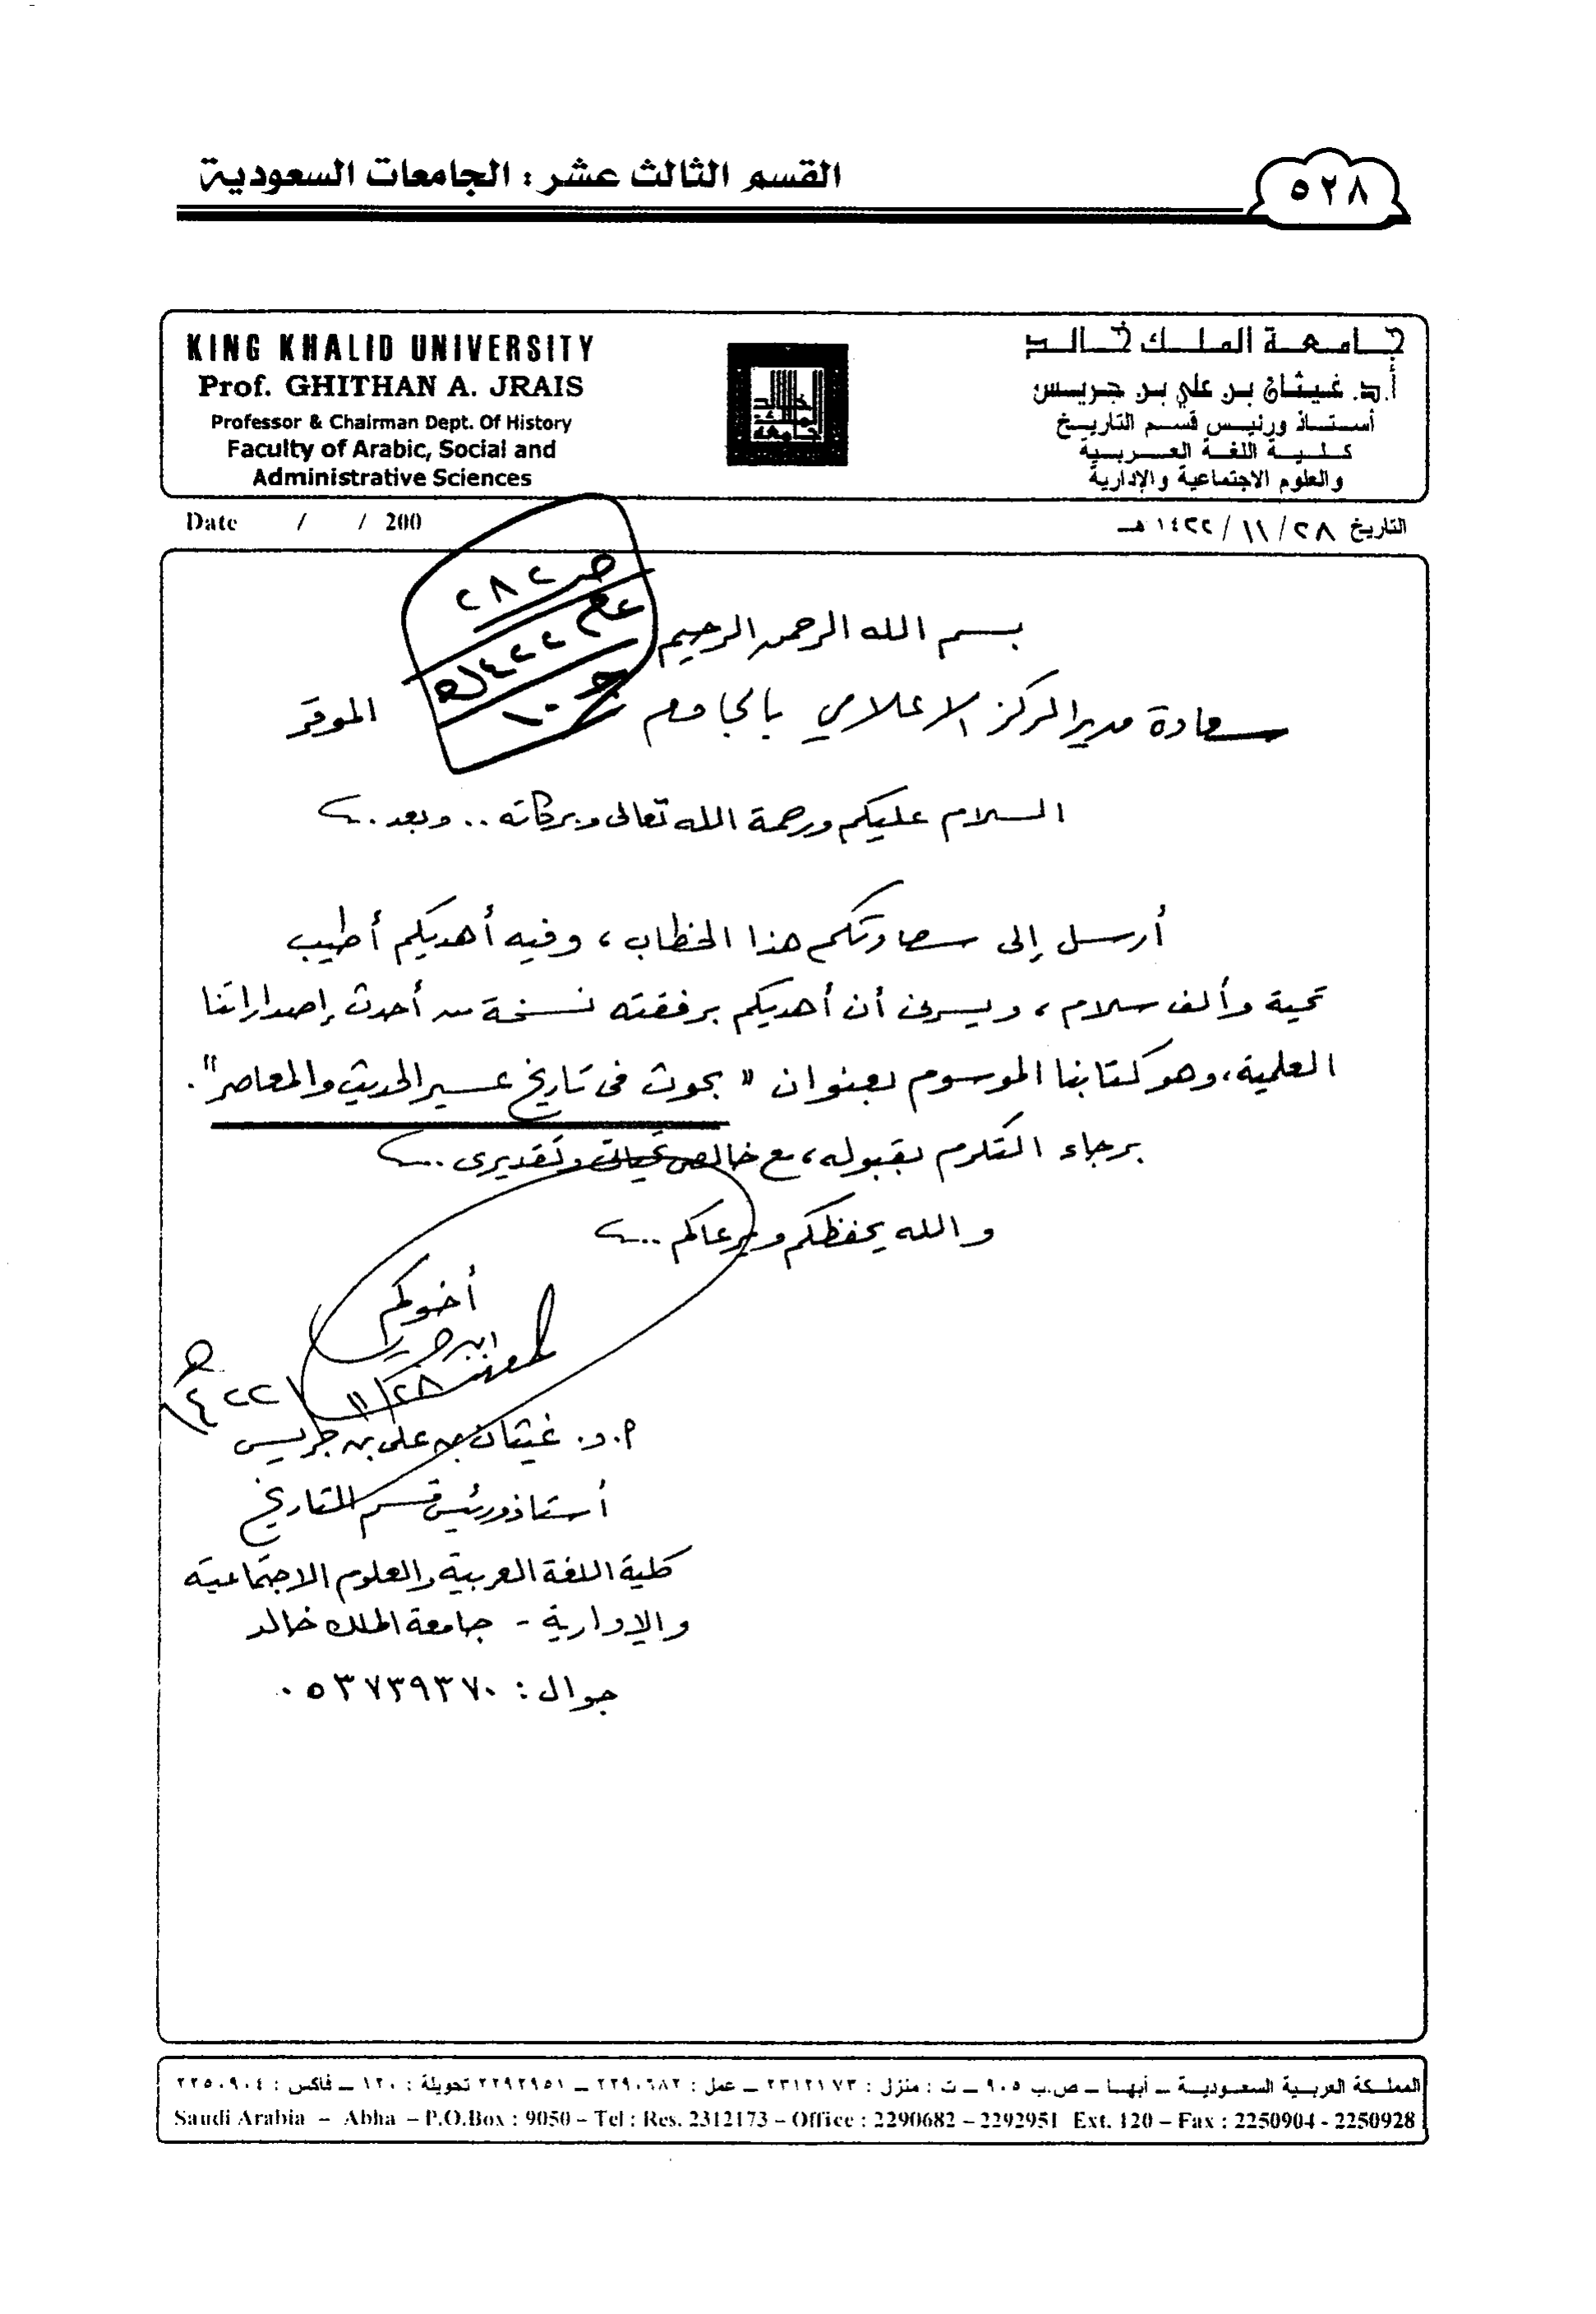 القسم الثالث عشر : الجامعات السعودية
٥٢٨
KING KHALID UNIVERSITY
Prof. GHITHAN A. JRAIS
Professor & Chairman Dept. Of History
Faculty of Arabic, Social and
Administrative Sciences
جامعة الملك خالد
أ.د. غيثان بن علي بن جريس
أستاذ ورئيس قسم التاريخ
كلية اللغة العربية
والعلوم الاجتماعية والإدارية
Date / / 200
التاريخ ٢٨ / ١١ / ١٤٢٢ هـ
ص ٢٨٢
عام ١٤٢٢هـ
ج ١٠
بسم الله الرحمن الرحيم
سعادة مدير المركز الاعلامي بالجامعة الموقر
السلام عليكم ورحمة الله تعالى وبركاته .. وبعد ..
أرسل إلى سعادتكم هذا الخطاب ، وفيه أهديكم أطيب
تحية وألف سلام ، ويسرني أن أهديكم برفقته نسخة من أحدث إصداراتنا
العلمية ، وهو كتابنا الموسوم بعنوان " بحوث في تاريخ عسير الحديث والمعاصر " .
برجاء التكرم بقبوله ، مع خالص تحياتي وتقديري ..
والله يحفظكم ويرعاكم ..
أخوكم
ابن جريس
٢٨/١١/١٤٢٢هـ
أ.د. غيثان بن علي بن جريس
أستاذ ورئيس قسم التاريخ
كلية اللغة العربية والعلوم الاجتماعية
والإدارية - جامعة الملك خالد
جوال : ٠٥٣٧٣٩٣٧٠
المملكة العربية السعودية – أبهـا – ص.ب ٩٠٥ – ت : منزل : ٢٣١٢١٧٣ – عمل : ٢٢٩٠٦٨٢ – ٢٢٩٢٩٥١ تحويلة : ١٢٠ – فاكس : ٢٢٥٠٩٠٤
Saudi Arabia – Abha – P.O.Box : 9050 – Tel : Res. 2312173 – Office : 2290682 – 2292951 Ext. 120 – Fax : 2250904 - 2250928